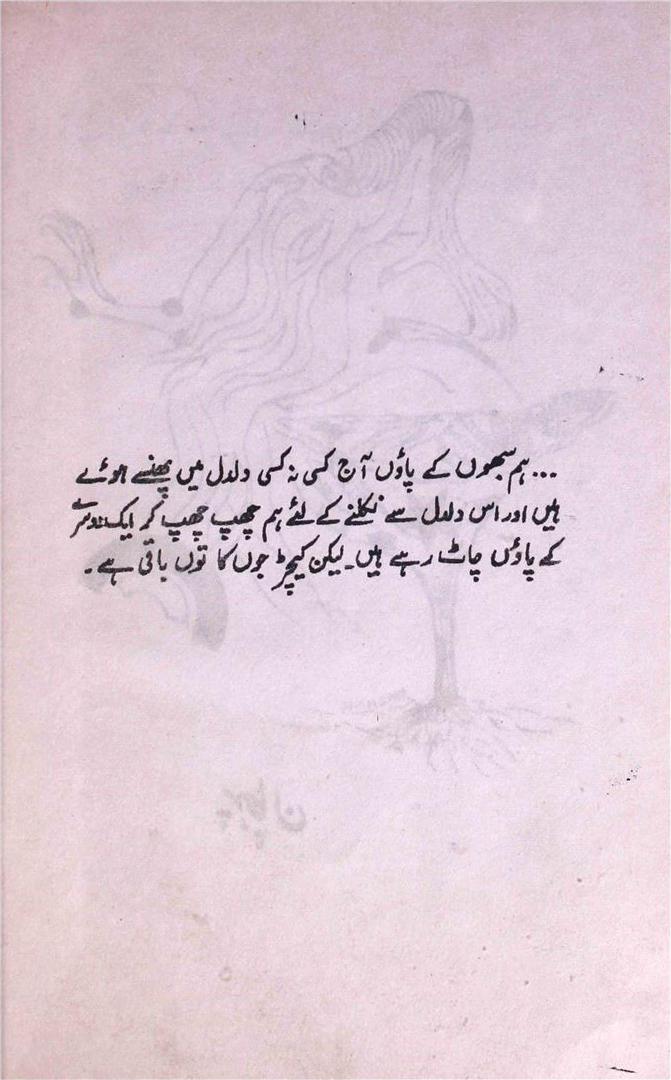 ... ہم سبھوں کے پاؤں آج کسی نہ کسی دلدل میں پھنسے ہوئے
ہیں اور اس دلدل سے نکلنے کے لئے ہم چھپ چھپ کر ایک دوسرے
کے پاؤں چاٹ رہے ہیں۔ لیکن کیچڑ جوں کا توں باقی ہے۔